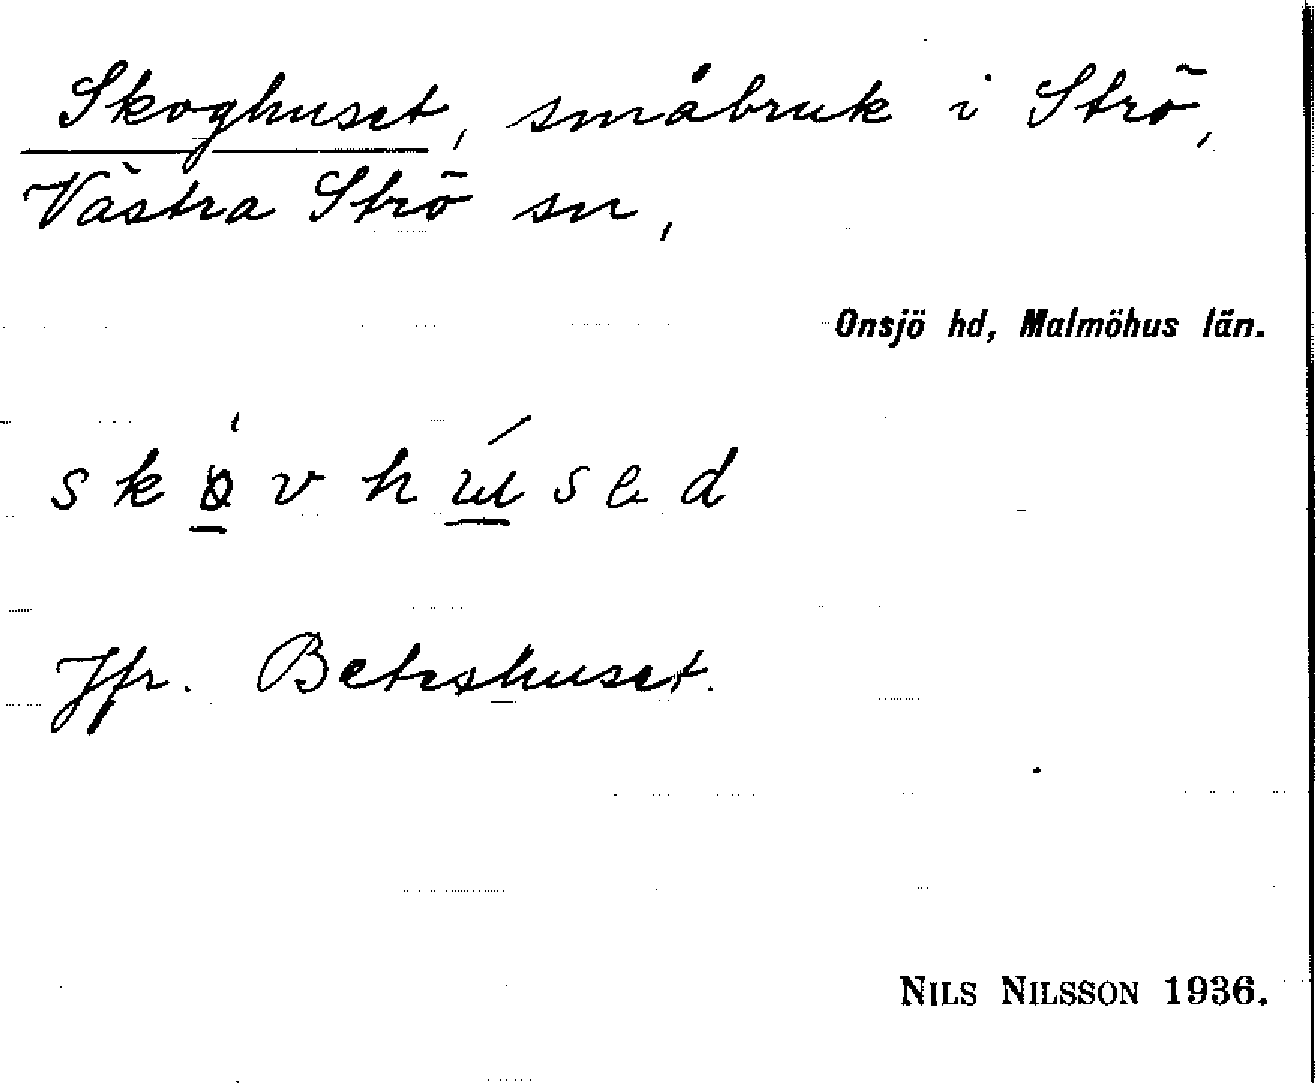 Skoghuset, småbruk i Strö,
Västra Strö sn,
Onsjö hd, Malmöhus län.
Jfr. Beteshuset.
NILS NILSSON 1936.